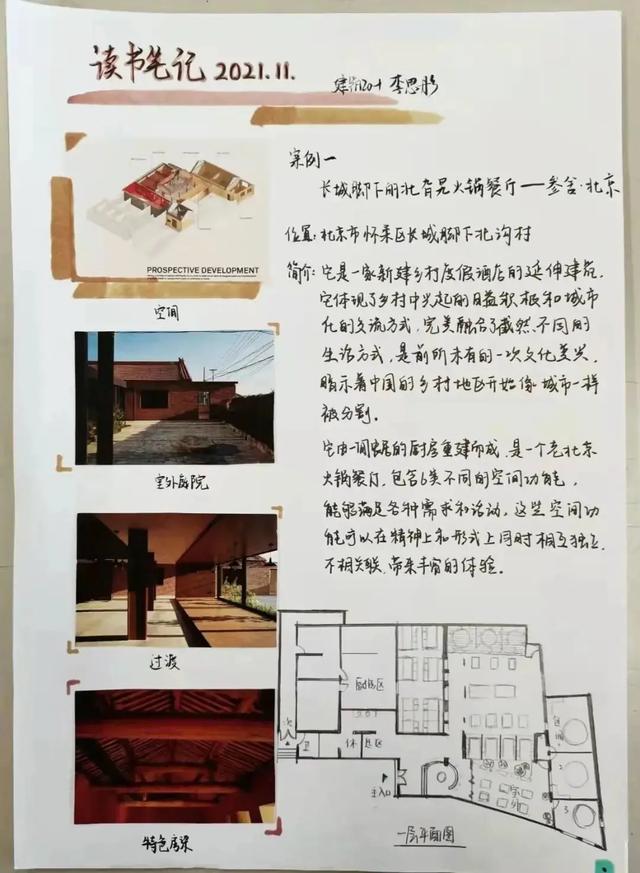 读书笔记 2021.11.
李思彤
案例一
长城脚下的北旮旯火锅餐厅——叁舍·北京
位置:北京市怀柔区长城脚下北沟村
简介:它是一家新建乡村度假酒店的延伸建筑,
它体现了乡村中兴起的日益积极和城市
化的交流方式,完美融合了截然不同的
生活方式,是前所未有的一次文化复兴,
暗示着中国的乡村地区开始像城市一样
被分割。
它由一间的厨房重建而成,是一个老北京
火锅餐厅,包含6类不同的空间功能,
能够满足各种需求和活动,这些空间功
能可以在精神上和形式上同时相互独立,
不相关联,带来丰富的体验。
PROSPECTIVE DEVELOPMENT
空间
室外庭院
过渡
特色房梁
厨房区
次
卫
休息区
主入口
室外
包间
1
2
3
一层平面图